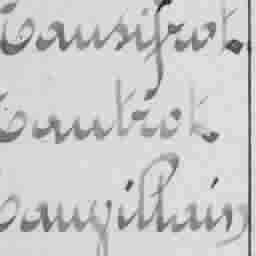 Causifrot.
Cautrot
Caugillain